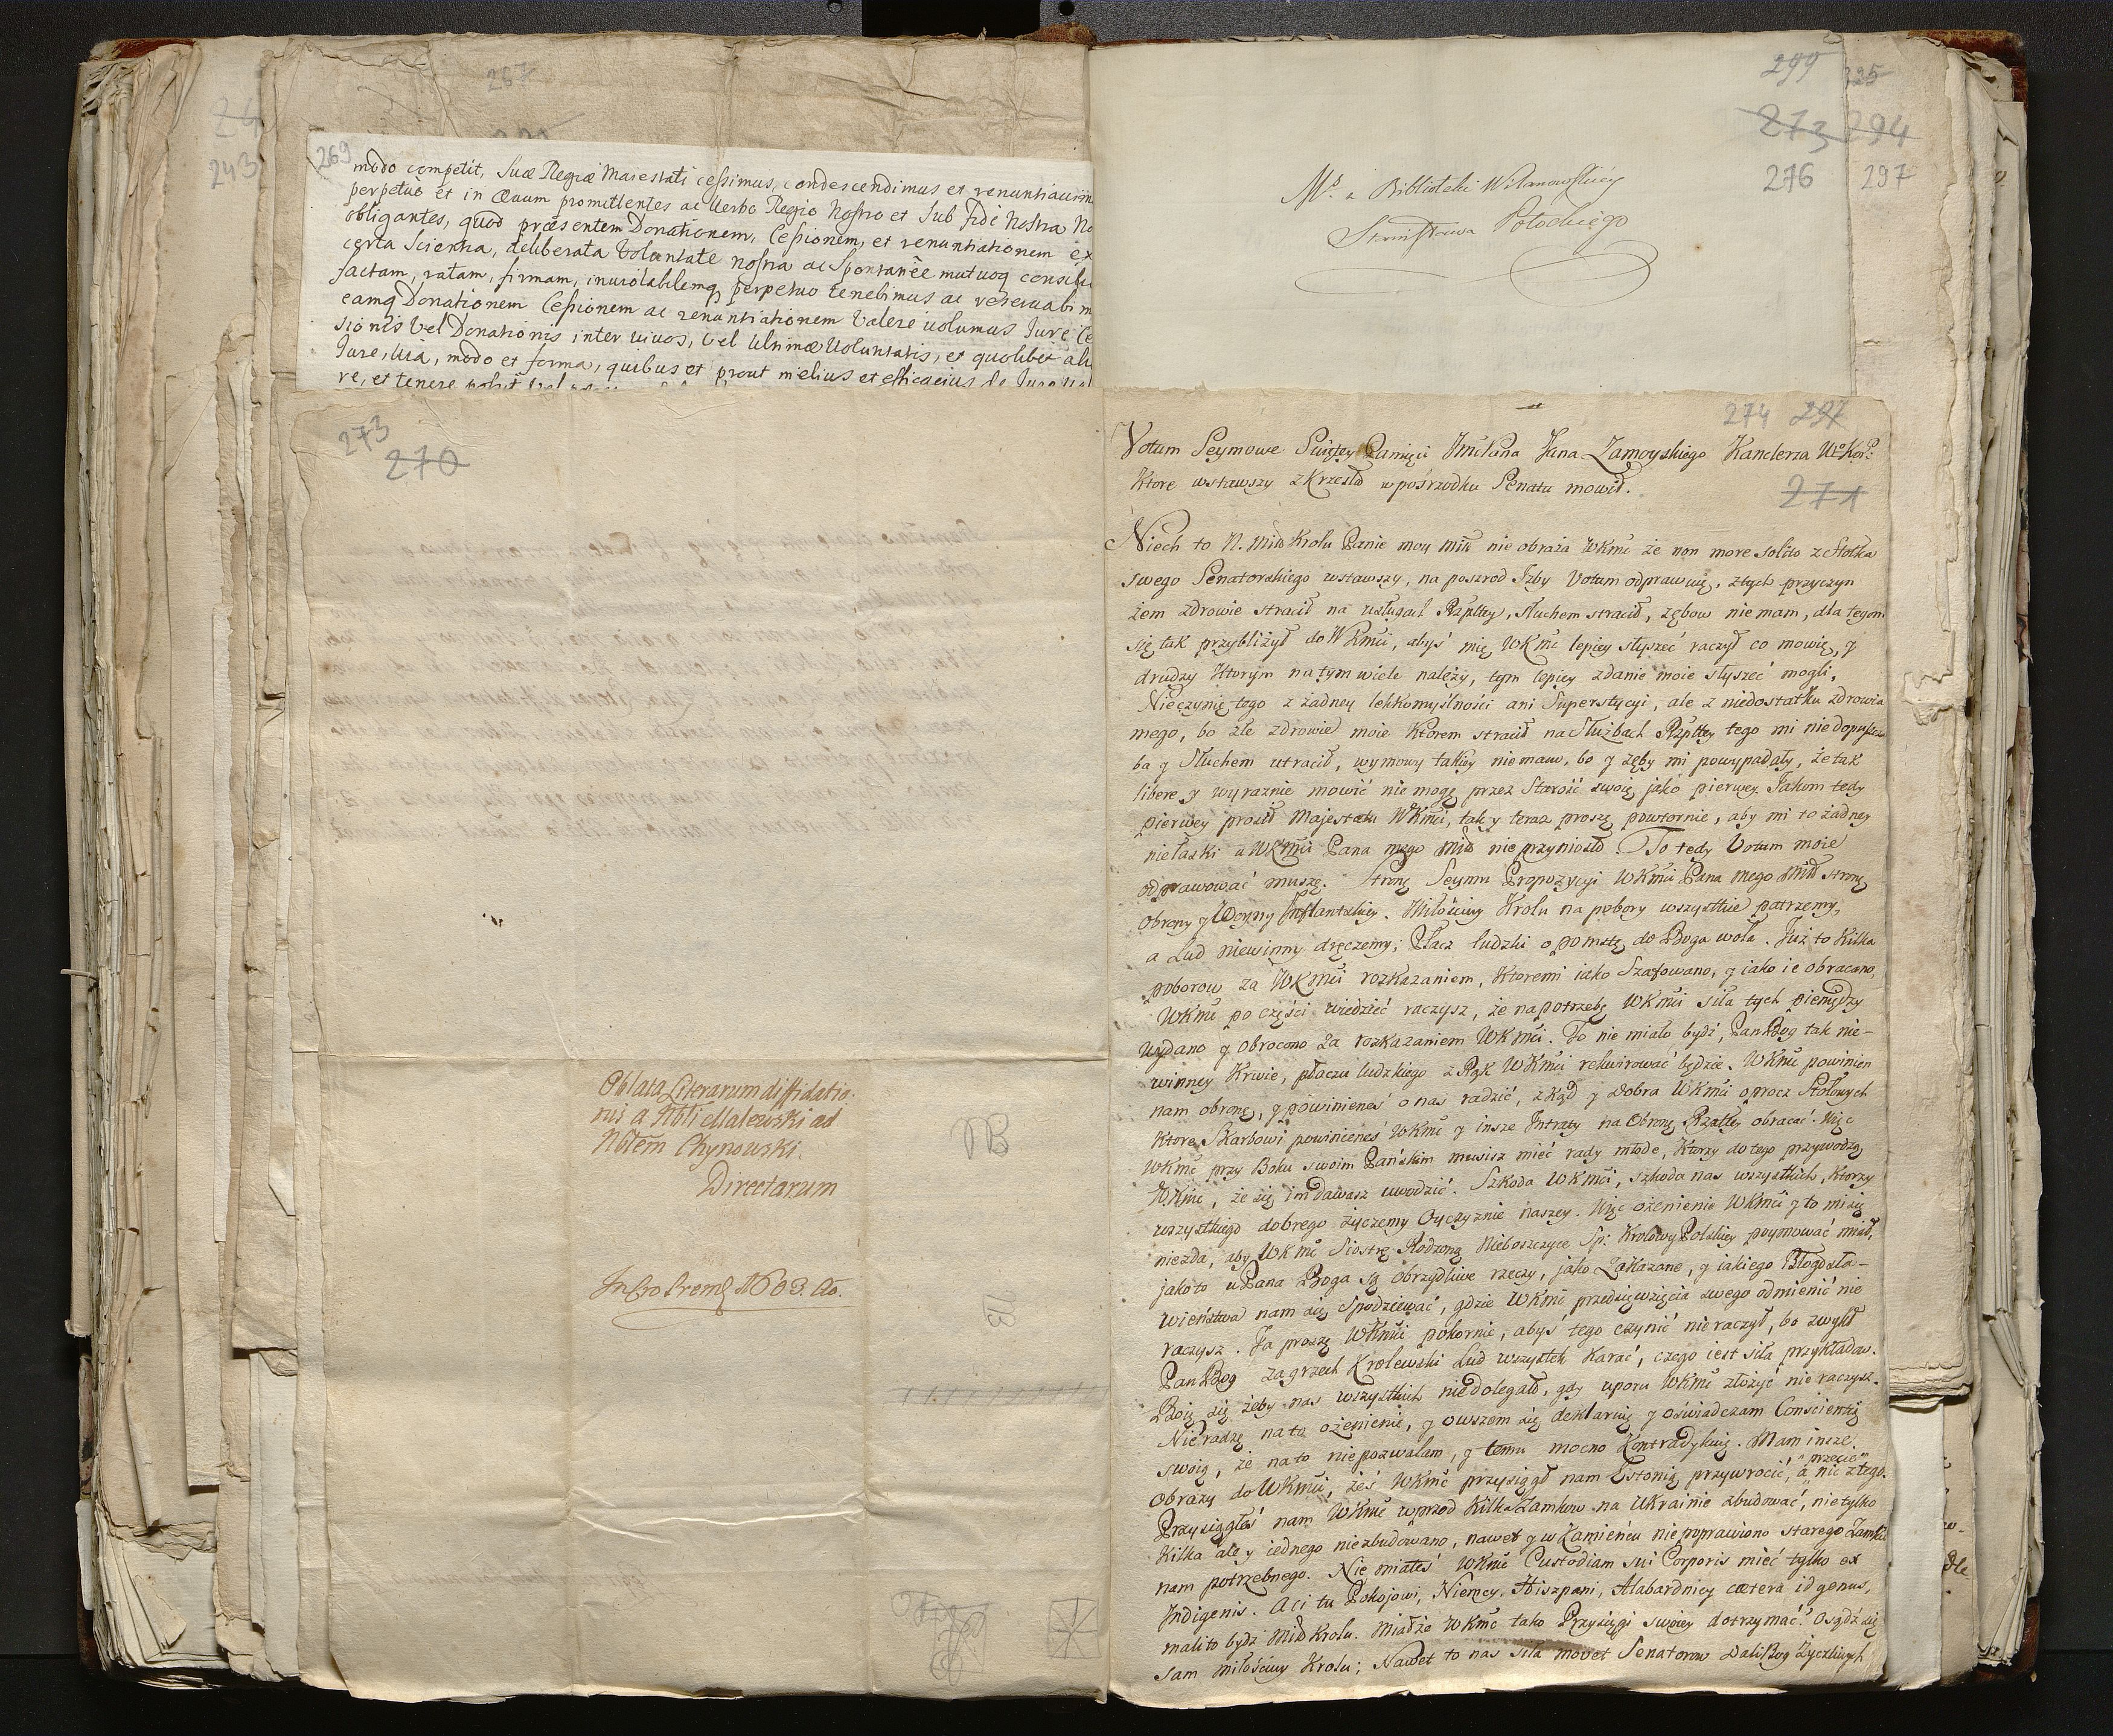 267
24
243
269
modo competit, Suæ Regiæ Maiestati cessimus, condescendimus et renuntiauim
perpetuò et in Æuum promittentes ac Verbo Regio Nostro et Sub fide Nostra No
obligantes, quod præsentem Donationem, Cessionem, et renuntiationem ex
certa Scientia, deliberata Voluntate nostra ac Spontanee mutuoq consil
factam, ratam, firmam, inuiolabilemq perpetuo tenebimus ac
eamq Donationem Cessionem ac renuntiationem Valere uolumus Jure Ce
sionis Vel Donationis inter uiuos, Vel Ultimæ Voluntatis, et quolibet ali
Jure, Via, modo et forma, quibus et prout melius et efficacius de Jure
re, et tenere
273
270
Oblata Literarum diffidatio-
nis a Nbli Malewski ad
Nblem Chynowski
Directarum
1603.
299
325
273 294
276 297
Ms. z Biblioteki Wilanowskiey
Stanisława Potockiego
274 297
271
Votum Seymowe Swiętey Pamięci Jmć Pana Jana Zamoyskiego Kanclerza Wo Kor:
Ktore wstawszy z Krzesła w pośrzodku Senatu mowił.
Niech to N. Miło Krolu Panie moy Miło nie obraża WKmć że non more solito z Stołka
swego Senatorskiego wstawszy, na poszrod Izby Votum odprawuię, z tych przyczyn
żem zdrowie stracił na usługach Rzpltey, słuchem stracił, zębow nie mam, dla tegom
się tak przybliżył do WKmci, abyś mię WKmć lepiey słyszeć raczył co mowię, y
drudzy Ktorym na tym wiele należy, tym lepiey zdanie moie słyszeć mogli.
Nie czynię tego z żadney lekkomyślności ani Superstycyi, ale z niedostatku zdrowia
mego, bo złe zdrowie moie Ktorem stracił na Służbach Rzpltey tego mi nie dopuszcza
ba y Słuchem utracił, wymowy takiey nie mam, bo y zęby mi powypadały, że tak
libere y wyraznie mowić nie mogę przez Starość swoię jako pierwey. Jakom tedy
pierwey prosił Majestatu WKmci, tak y teraz proszę powtornie, aby mi to żadney
niełaski u WKmci Pana mego Miło nie przyniosło. To tedy Votum moie
odprawować muszę. Stronę Seymu Propozycyi WKmci Pana mego Miło stronę
obrony y Woyny Inflantskiey. Miłościwy Krolu na pobory wszystkie patrzemy,
a Lud niewinny dręczemy; Płacz ludzki o pomstę do Boga woła. Już to Kilka
poborow za WKmci rozkazaniem, Ktoremi iako Szafowano, y iako ie obracano,
WKmć po części wiedzieć raczysz, że na potrzebę WKmci siła tych pieniędzy
wydano y obrocono za rozkazaniem WKmci. To nie miało bydź, Pan Bog tak nie-
winney Krwie, płaczu ludzkiego z Rąk WKmci rekwirować będzie. WKmć powinien
nam obronę, y powinieneś o nas radzić, zkąd y dobra WKmci oprocz Stołowych
Ktore Skarbowi powinieneś WKmć y insze Intraty na Obronę Rzpltey obracać. Więc
WKmć przy Boku swoim Pańskim musisz mieć rady młode, Ktorzy do tego przywodzą
WKmć, że się im dawasz uwodzić. Szkoda WKmci, szkoda nas wszystkich, Ktorzy
wszystkiego dobrego życzemy Oyczyznie naszey. Więc ożenienie WKmci y to mi się
niezda, aby WKmć Siostrę Rodzoną Nieboszczyce Sp: Krolowy Polskiey poymować miał,
jako to u Pana Boga są obrzydliwe rzeczy, jako Zakazane, y iakiego Błogosła-
wieństwa nam się Spodziewać, gdzie WKmć przedsięwzięcia swego odmienić nie
raczysz. Ja proszę WKmci pokornie, abyś tego czynić nie raczył, bo zwykł
Pan Bog za grzech Krolewski Lud wszystek Karać, czego iest siła przykładow.
Boię się żeby nas wszystkich niedolegało, gdy uporu WKmć złożyć nie raczysz.
Nie radzę na to ożenienie, y owszem się deklaruię y oświadczam Conscientią
swoią, że na to nie pozwalam, y temu mocno Kontradykuię. Mam insze
Obrazy do WKmci, żeś WKmć przysiągł nam Estonią przywrocić, a przecie nic z tego.
Przysiągłeś nam WKmć wprzod Kilka Zamkow na Ukrainie zbudować, nie tylko
Kilka ale y iednego niezbudowano, nawet y w Kamieńcu nie poprawiono starego Zamku
nam potrzebnego. Nie miałeś WKmć Custodiam sui Corporis mieć tylko ex
Indigenis. A ci tu Pokojowi, Niemcy, Hiszpani, Alabardnicy cætera id genus,
mali to bydź Miło Krolu. Miałże WKmć tako Przysięgi swoiey dotrzymać? Osądź się
sam miłościwy Krolu; Nawet to nas siła movet Senatorow Dali Bog Życzliwych